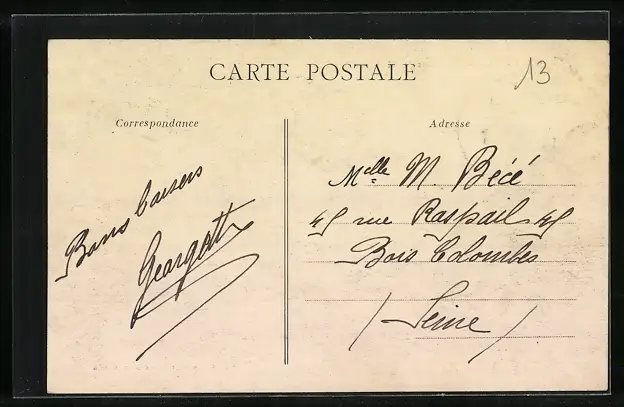 CARTE POSTALE
13
Correspondance
Bons baisers
Adresse
Melle M. Bécé
45 rue Raspail 45
Bois Colombes
(Seine)